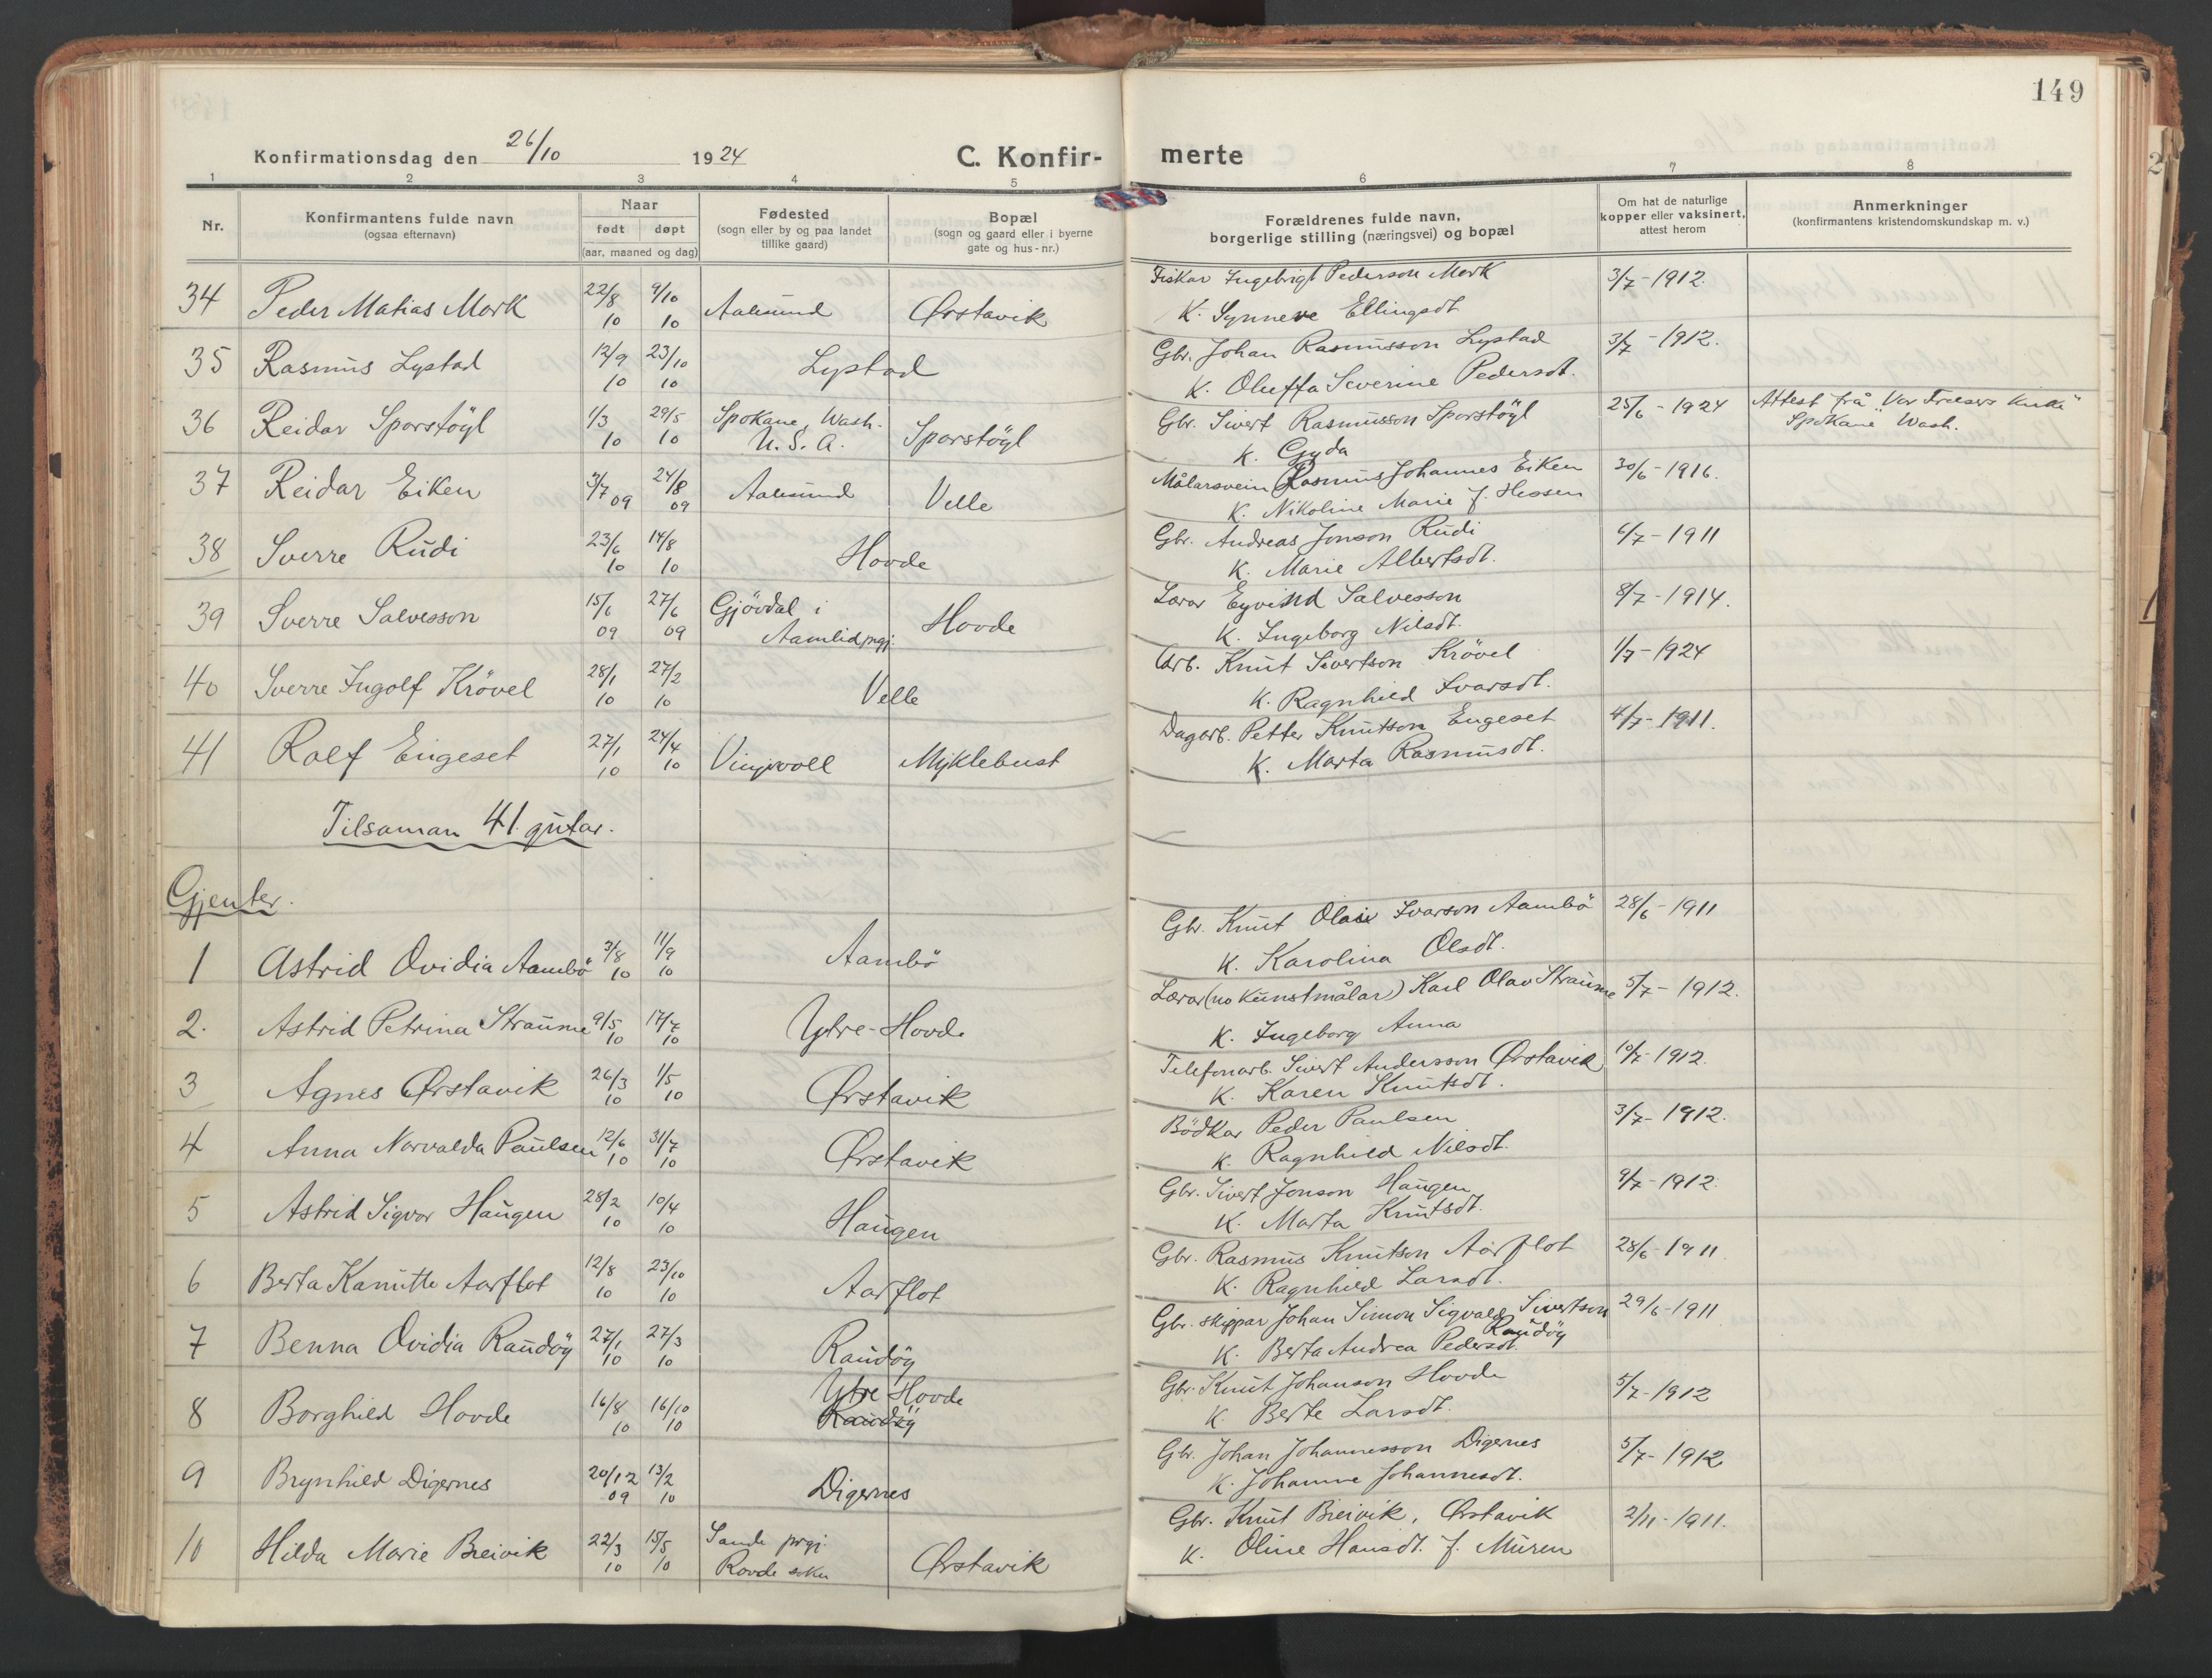 149
Konfirmationsdag den 26/10 1924 C. Konfir- merte
1 2 3 4 5 6 7 8
Nr. Konfirmantens fulde navn (ogsaa efternavn) Naar født døpt (aar, maaned og dag) Fødested (sogn eller by og paa landet tillike gaard) Bopæl (sogn og gaard eller i byerne gate og hus-nr.) Forældrenes fulde navn, borgerlige stilling (næringsvei) og bopæl Om hat de naturlige kopper eller vaksinert, attest herom Anmerkninger (konfirmantens kristendomskundskap m. v.)
34 Peder Matias Mork 22/8 10 9/10 10 Aalesund Ørstavik Fiskar Ingebrigt Pederson Mork 3/7-1912.
K. Synneve Ellingsdt
35 Rasmus Lystad 12/9 10 23/10 10 Lystad Gbr. Johan Rasmusson Lystad 3/7-1912.
K. Oluffa Severine Pedersdt.
36 Reidar Sporstöyl 1/3 10 29/5 10 Spokane, Wash. U.S.A. Sporstöyl Gbr. Sivert Rasmusson Sporstöyl 25/6-1924 Attest frå "Vor Frelsers Kirke"
K. Gyda Spokane Wash.
37 Reidar Eiken 3/7 09 24/8 09 Aalesund Velle Målarsvein Rasmus Johannes Eiken 30/6-1916.
K. Nikoline Marie f. Hessen
38 Sverre Rudi 23/6 10 14/8 10 Hovde Gbr. Andreas Jonson Rudi 6/7-1911
K. Marie Albertsdt.
39 Sverre Salvesson 15/6 09 27/6 09 Gjövdal i Aamlid prgj. Hovde Lærar Eyvind Salvesson 8/7-1914.
K. Ingeborg Nilsdt.
40 Sverre Ingolf Krövel 28/1 10 27/2 10 Velle Arb. Knut Sivertson Krövel 1/7-1924
K. Ragnhild Ivarsdt.
41 Ralf Engeset 27/1 10 24/4 10 Vingvoll Myklebust Dagarb. Petter Knutson Engeset 4/7-1911.
K. Marta Rasmusdt.
Tilsaman 41 gutar.
Gjenter.
1 Astrid Ovidia Aambö 3/8 10 11/9 10 Aambö Gbr. Knut Olai Ivarson Aambö 28/6-1911
K. Karolina Olsdt.
2. Astrid Petrina Straume 9/5 10 17/7 10 Ytre-Hovde Lærar (no kunstmålar) Karl Olav Straume 5/7-1912.
K. Ingeborg Anna
3 Agnes Ørstavik 26/3 10 1/5 10 Ørstavik Telefonarb. Sivert Andersson Ørstavik 10/7-1912.
K. Karen Knutsdt.
4 Anna Norvalda Paulsen 12/6 10 31/7 10 Ørstavik Bödkar Peder Paulsen 3/7-1912.
K. Ragnhild Nilsdt.
5 Astrid Sigvor Haugen 28/2 10 10/4 10 Haugen Gbr. Sivert Jonson Haugen 9/7-1912.
K. Marta Knutsdt.
6 Berta Kanutte Aarflot 12/8 10 23/10 10 Aarflot Gbr. Rasmus Knutson Aarflot 28/6-1911
K. Ragnhild Larsdt.
7 Benna Ovidia Raudöy 27/1 10 27/3 10 Raudöy Gbr. skippar Johan Simon Sigvald Sivertson Raudöy 29/6-1911
K. Berta Andrea Pedersdt.
8 Borghild Hovde 16/8 10 16/10 10 Ytre Hovde Raudöy Gbr. Knut Johanson Hovde 5/7-1912
K. Berte Larsdt.
9 Brynhild Digernes 20/12 09 13/2 10 Digernes Gbr. Johan Johannesson Digernes 5/7-1912
K. Johanne Johannesdt.
10 Hilda Marie Breivik 22/3 10 15/5 10 Sande prgj. Rovde sokn Ørstavik Gbr. Knut Breivik, Ørstavik 2/11-1911.
K. Oline Hansdt. f. Muren